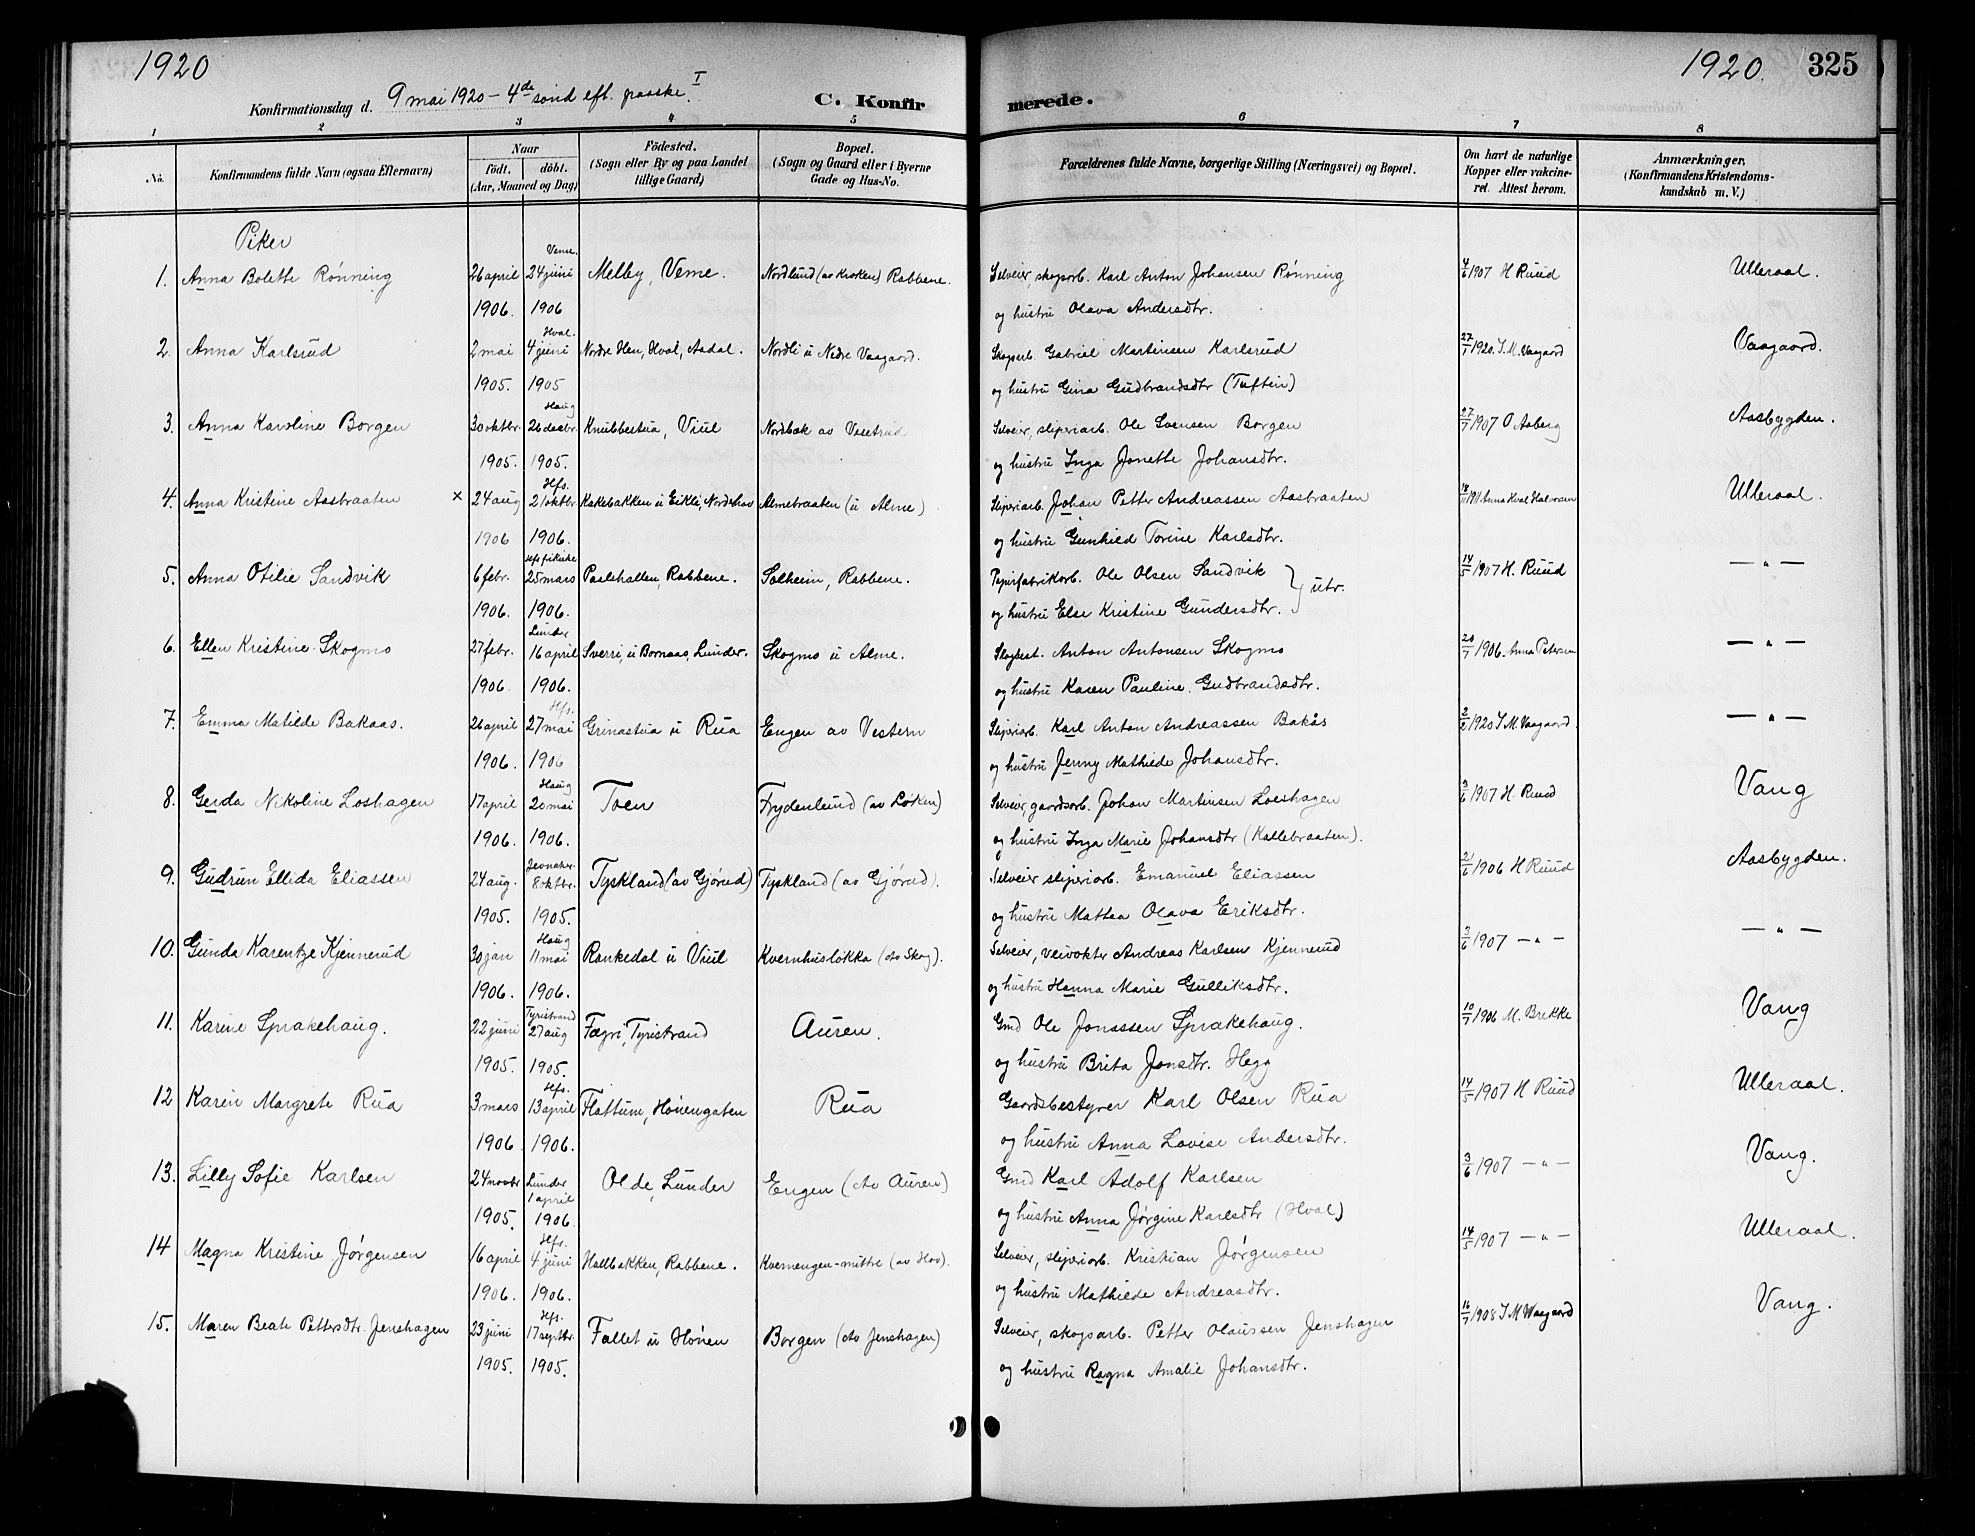 1920
1920.
325
Konfirmationsdag d. 9 mai 1920 - 4de sønd eft. paaske. I
C. Konfirmerede.
1 2 3 4 5 6 7 8
No.
Konfirmandens fulde Navn (ogsaa Efternavn)
Naar
födt. döbt.
(Aar, Maaned og Dag)
Födested.
(Sogn eller By og paa Landet
lillige Gaard)
Bopæl.
(Sogn og Gaard eller i Byerne
Gade og Hus-No.
Forældrenes fulde Navne, borgerlige Stilling (Næringsvei) og Bopæl.
Om havt de naturlige
Kopper eller vakcine-
ret. Attest herom.
Anmærkninger,
(Konfirmandens Kristendoms-
kundskab m. V.)
Piker
Veme.
1. Anna Bolette Rønning 26 april 24 juni Melby, Veme. Nordlund (av Kroken) Rabbene. Selveier, skogsarb. Karl Anton Johansen Rønning 4/6 1907 H Ruud Ulleraal.
1906. 1906 og hustru Olava Andersdtr.
Hval.
2. Anna Karlsrud 2 mai 4 juni Nordre Hen, Hval, Aadal. Nordli u Nedre Vaagaard. Skogsarb. Gabriel Martinsen Karlsrud 27/1 1920. I. M. Vaagaard Vaagaard.
1905. 1905 og hustru Gina Gudbrandsdtr (Tuftin)
Haug
3. Anna Karoline Borgen 30 oktbr. 26 decbr. Knubbestua, Viul Nordbæk av Vesetrud Selveier, sliperiarb. Ole Svensen Borgen 27/7 1907 O Aaberg Aasbygden.
1905. 1905. og hustru Inga Jonette Johansdtr.
Hfs.
4. Anna Kristine Aasbraaten × 24 aug 21 oktbr. Kakebakken u Eikli, Norderhov Almebraaten (u Alme) Sliperiarb. Johan Petter Andreassen Aasbraaten 18/11 1911 Anna Hval Halvorsen Ulleraal.
1906 1906. og hustru Gunhild Torine Karlsdtr.
Hfs fikirke
5. Anna Otilie Sandvik 6 febr. 25 mars Paalehallen, Rabbene. Solheim, Rabbene. Papirfabrikarb. Ole Olsen Sandvik } utr. 14/5 1907 H. Ruud — " —
1906. 1906. og hustru Else Kristine Gundersdtr.
Lunder
6. Ellen Kristine Skogmo 27 febr. 16 april Sverri, u Bornaas, Lunder. Skogmo u Alme. Skogbest. Anton Antonsen Skogmo 20/7 1906. Anna Petersen — " —
1906. 1906. og hustru Karen Pauline Gudbrandsdtr.
Hfs.
7. Emma Matilde Bakaas. 26 april 27 mai Grinastua u Rua Engen av Vestern Sliperiarb. Karl Anton Andreassen Bakås 2/2 1920 I. M. Vaagaard. — " —
1906. 1906 og hustru Jenny Mathilde Johansdtr.
Haug
8. Gerda Nikoline Loshagen 17 april 20 mai Toen Frydenlund (av Løken) Selveier, gaardsarb. Johan Martinsen Loeshagen 3/6 1907 H. Ruud Vang
1906. 1906. og hustru Inga Marie Johansdtr (Kallebraaten).
Jevnaker
9. Gudrun Ellida Eliassen 24 aug. 8 oktbr. Tyskland (av Gjørud) Tyskland (av Gjørud). Selveier sliperiarb. Emanuel Eliassen 21/6 1906 H Ruud Aasbygden.
1905. 1905. og hustru Mattea Olava Eriksdtr.
Haug
10. Gunda Karentze Kjennerud 30 jan 11 mai Rankedal u Viul Kvernhusløkka (av Skog). Selveier, veivokter Andreas Karlsen Kjennerud 3/6 1907 — " — — " —
1906. 1906. og hustru Hanna Marie Gulliksdtr.
Tyristrand
11. Karine Sprakehaug. 22 juni 27 aug Fægri, Tyristrand Auren. Gmd Ole Jonassen Sprakehaug. 10/7 1906 M. Brekke Vang
1905. 1905. og hustru Brita Jonsdtr. Hegg
Hfs.
12 Karen Margrete Rua 3 mars 13 april Flattum, Hønengaten Rua Gaardsbestyrer Karl Olsen Rua 14/5 1907 H Ruud Ulleraal.
1906. 1906. og hustru Anna Lovise Andersdtr.
13. Lilly Sofie Karlsen 24 novbr Lunder 1 april Olde, Lunder Engen (av Auren) Gmd Karl Adolf Karlsen 3/6 1907 — " — Vang.
1905. 1906. og hustru Anna Jørgine Karlsdtr (Hval)
Hfs.
14 Magna Kristine Jørgensen 16 april 4 juni Hallbakken, Rabbene. Kvernengen-mittre (av Hov). Selveier, sliperiarb. Kristian Jørgensen 14/5 1907 — " — Ulleraal.
1906. 1906. og hustru Mathilde Andreasdtr.
Hfs.
15. Maren Beate Pettersdtr. Jenshagen 23 juni 17 septbr. Fallet u Hönen Borgen (av Jenshagen) Selveier, skogsarb. Petter Olaussen Jenshagen 16/7 1908 I. M Waagaard Vang.
1905. 1905. og hustru Ragna Amalie Johansdtr.